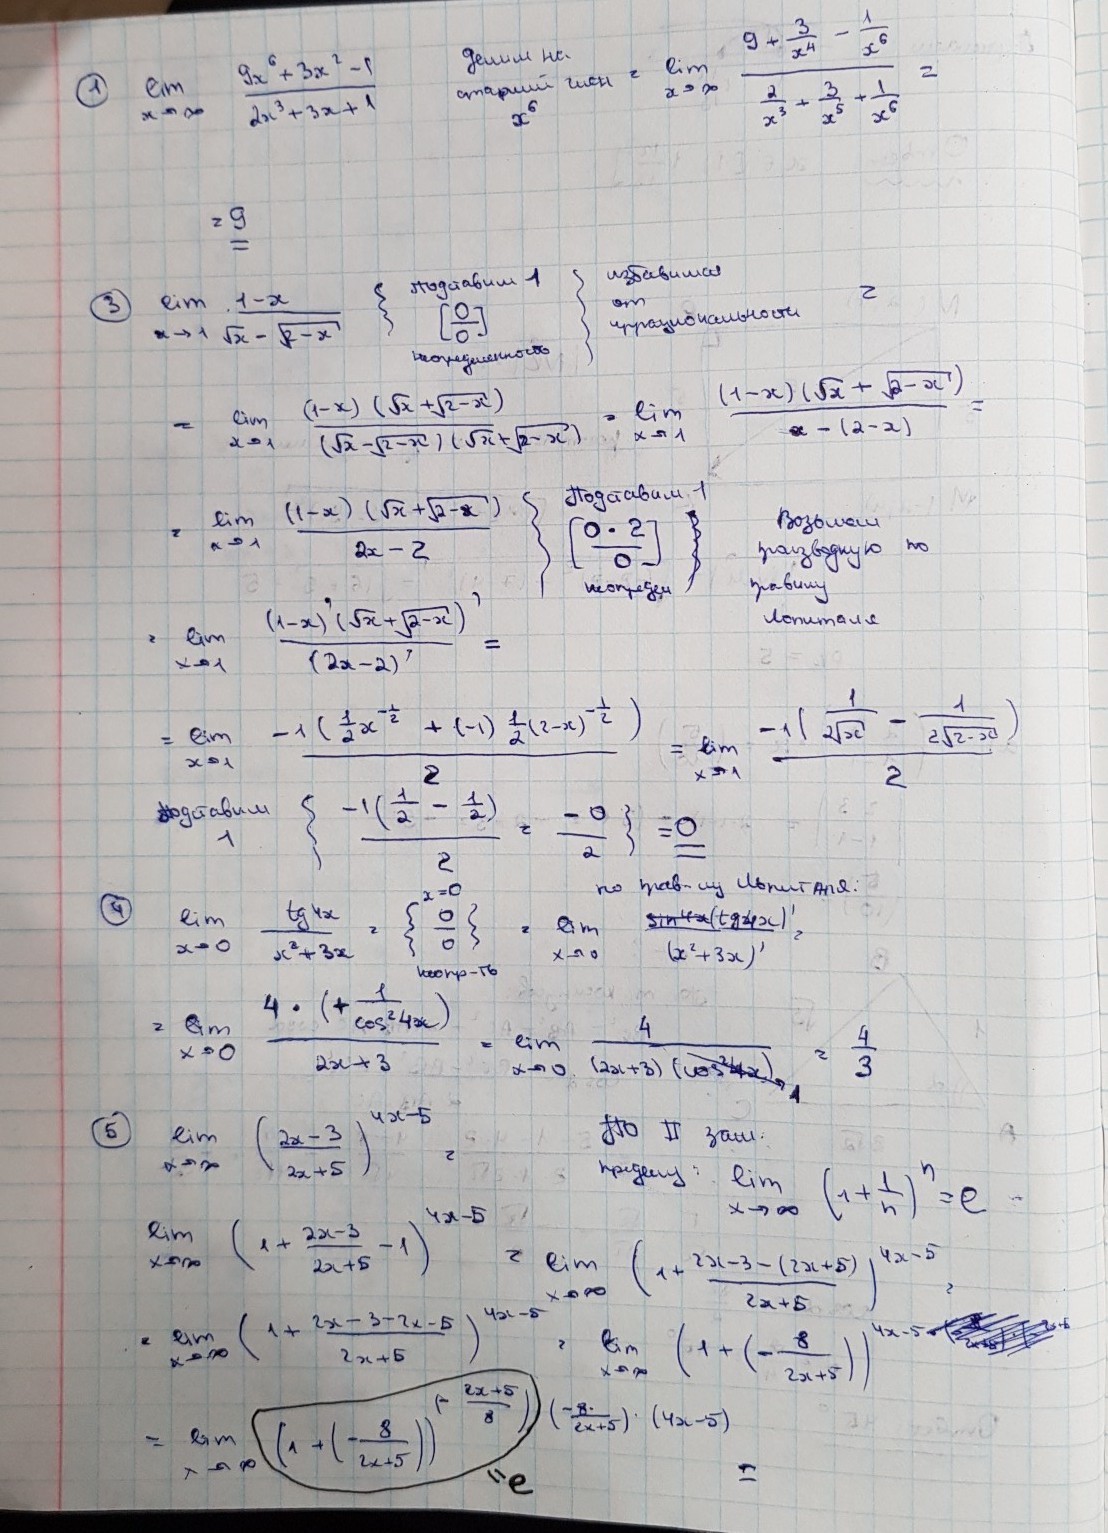 ① lim x→∞ (9x⁶+3x²-1)/(2x³+3x+1) делим на старший член x⁶ = lim x→∞ (9+3/x⁴-1/x⁶)/(2/x³+3/x⁵+1/x⁶) =
= 9
③ lim x→1 (1-x)/(√x-√(2-x)) { Подставим 1 [0/0] неопределенность } избавимся от иррациональности =
= lim x→1 ((1-x)(√x+√(2-x)))/((√x-√(2-x))(√x+√(2-x))) = lim x→1 ((1-x)(√x+√(2-x)))/(x-(2-x)) =
= lim x→1 ((1-x)(√x+√(2-x)))/(2x-2) { Подставим 1 [0·2/0] неопредел } Возьмем производную по правилу Лопиталя
= lim x→1 ((1-x)'(√x+√(2-x))')/(2x-2)' =
= lim x→1 (-1(½x^(-½)+(-1)½(2-x)^(-½)))/2 = lim x→1 (-1(1/(2√x)-1/(2√(2-x))))/2
Подставим 1 { (-1(½-½))/2 = -0/2 } = 0
④ lim x→0 tg4x/(x²+3x) = { x=0 0/0 неопр-ть } = по прав-лу Лопиталя: lim x→0 (tg4x)'/(x²+3x)' =
= lim x→0 (4·(+1/cos²4x))/(2x+3) = lim x→0 4/((2x+3)(cos²4x)) →1 = 4/3
⑤ lim x→∞ ((2x-3)/(2x+5))^(4x-5) = По II зам. пределу: lim x→∞ (1+1/n)ⁿ = e
lim x→∞ (1+(2x-3)/(2x+5)-1)^(4x-5) = lim x→∞ (1+(2x-3-(2x+5))/(2x+5))^(4x-5) =
= lim x→∞ (1+(2x-3-2x-5)/(2x+5))^(4x-5) = lim x→∞ (1+(-8/(2x+5)))^(4x-5)
= lim x→∞ (1+(-8/(2x+5)))^((-(2x+5)/8)·(-8/(2x+5))·(4x-5)) =
"e